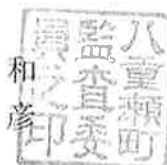 八重瀬町
監査委
員之印
和彦